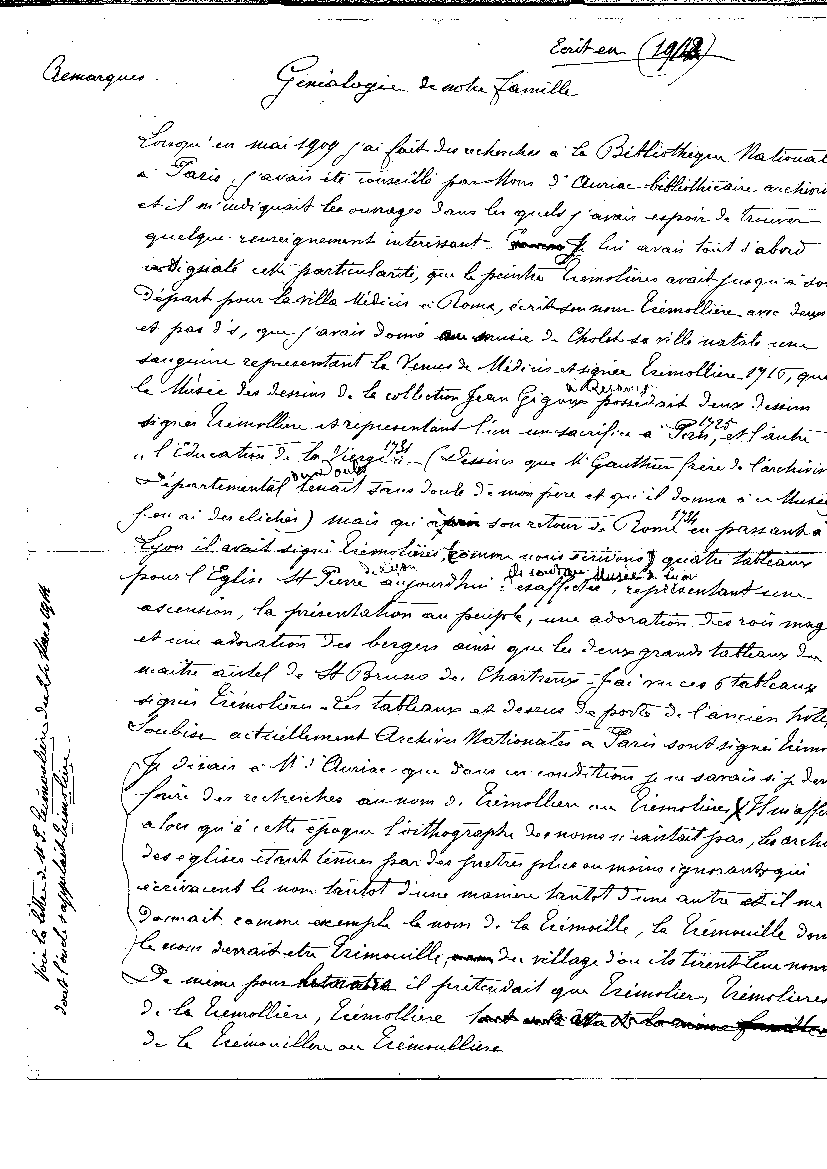 Ecrit en (1912)
Remarques.
Généalogie de notre famille
Lorsqu'en mai 1909 j'ai fait des recherches à la Bibliothèque National
à Paris, j'avais été conseillé par Mons d'Auriac bibliothécaire archivis
et il m'indiquait les ouvrages dans les quels j'avais espoir de trouver
quelque renseignement interessant. Je lui avais tout d'abord
cette particularité, que le peintre Trémolières avait jusqu'à son
départ pour la villa Médicis à Rome, écrit son nom Trémollière avec deux
et pas d's, que j'avais donné au musée de Cholet sa ville natale une
sanguine représentant la Venus de Médicis et signée Trémollière 1716, que
à Besançon
le Musée des dessins de la collection Jean Gigoux possédait deux dessins
signés Trémollière et représentant l'un un sacrifice à 1725, et l'autre
"l'Education de la Vierge" 1731 (Dessins que Mr Gauthier frère de l'archivis
Départemental tenait sans doute de mon père et qu'il donna à ce Musée
j'en ai des clichés) mais qu'à son retour de Rome 1734 en passant à
Lyon il avait signé Trémolières, (comme nous écrivons) quatre tableaux
de Lyon ils sont au Musée de Lyon
pour l'Eglise St Pierre aujourd'hui désaffectée, représentant une
ascension, la présentation au peuple, une adoration des rois mag
et une adoration des bergers ainsi que les deux grands tableaux du
maitre autel de St Bruno des Chartreux - J'ai vu ces 6 tableaux
signés Trémolières. Les tableaux et dessus de porte de l'ancien hôtel
Soubise actuellement Archives Nationales à Paris sont signés Trémo
Je disais à Mr d'Auriac que dans ces conditions je ne savais si je dev
faire des recherches au nom de Trémollière ou Trémolière, Il m'affir
alors qu'à cette époque l'orthographe des noms n'existait pas, les archi
des églises étant tenues par des prêtres plus ou moins ignorants qui
écrivaient le nom tantôt d'une manière tantôt d'une autre et il me
donnait comme exemple le nom de la Trémoille, la Trémouille dont
le nom devrait etre Trimouille, du village d'ou ils tirent leur nom
De même pour il prétendait que Trémolier, Trémolieres
de la Trémollière, Trémollière
de la Trémouillère ou Trémoullière
Voir la lettre de Mr P. Trémoulière du 24 Mars 1914
dont l'oncle s'appelait Trémolière